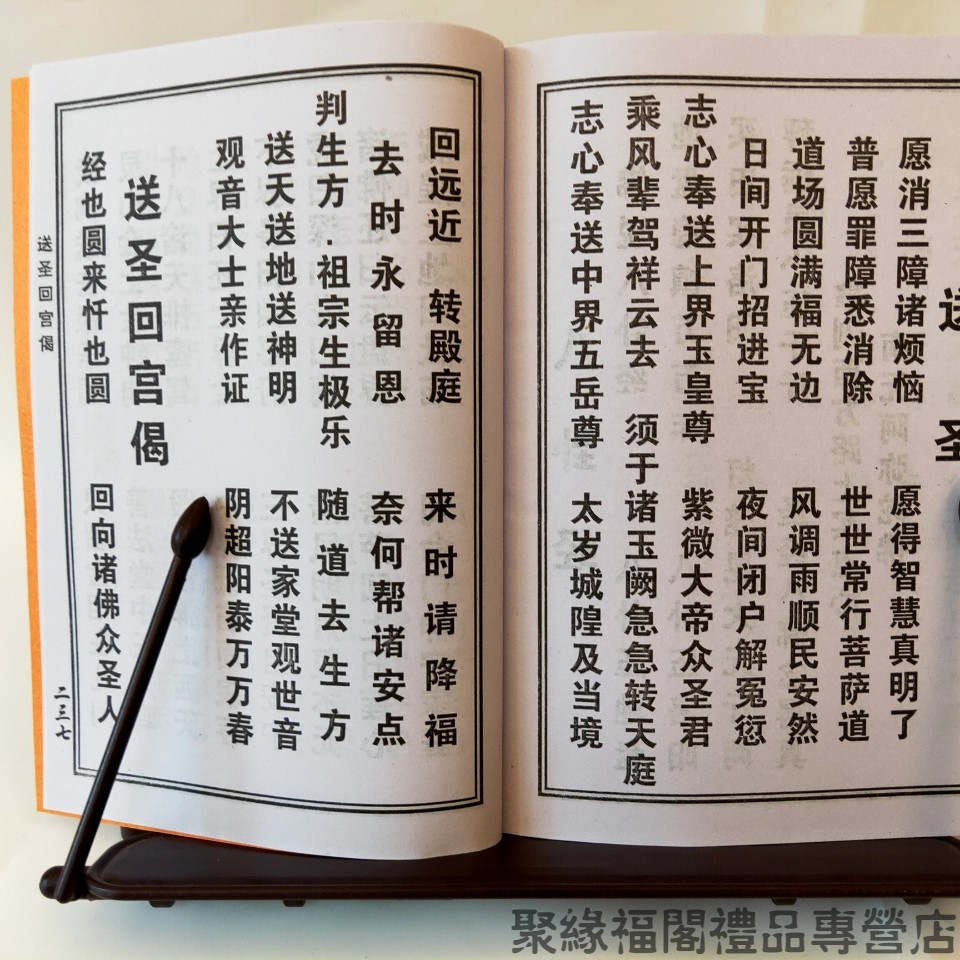 送圣
愿消三障诸烦恼 愿得智慧真明了
普愿罪障悉消除 世世常行菩萨道
道场圆满福无边 风调雨顺民安然
日间开门招进宝 夜间闭户解冤愆
志心奉送上界玉皇尊 紫微大帝众圣君
乘风辈驾祥云去 须于诸玉阙急急转天庭
志心奉送中界五岳尊 太岁城隍及当境
回远近 转殿庭 来时请降福
去时永留恩 奈何帮诸安点
判生方.祖宗生极乐 随道去生方
送天送地送神明 不送家堂观世音
观音大士亲作证 阴超阳泰万万春
送圣回宫偈
经也圆来忏也圆 回向诸佛众圣人
送圣回宫偈
二三七
聚緣福閣禮品專營店